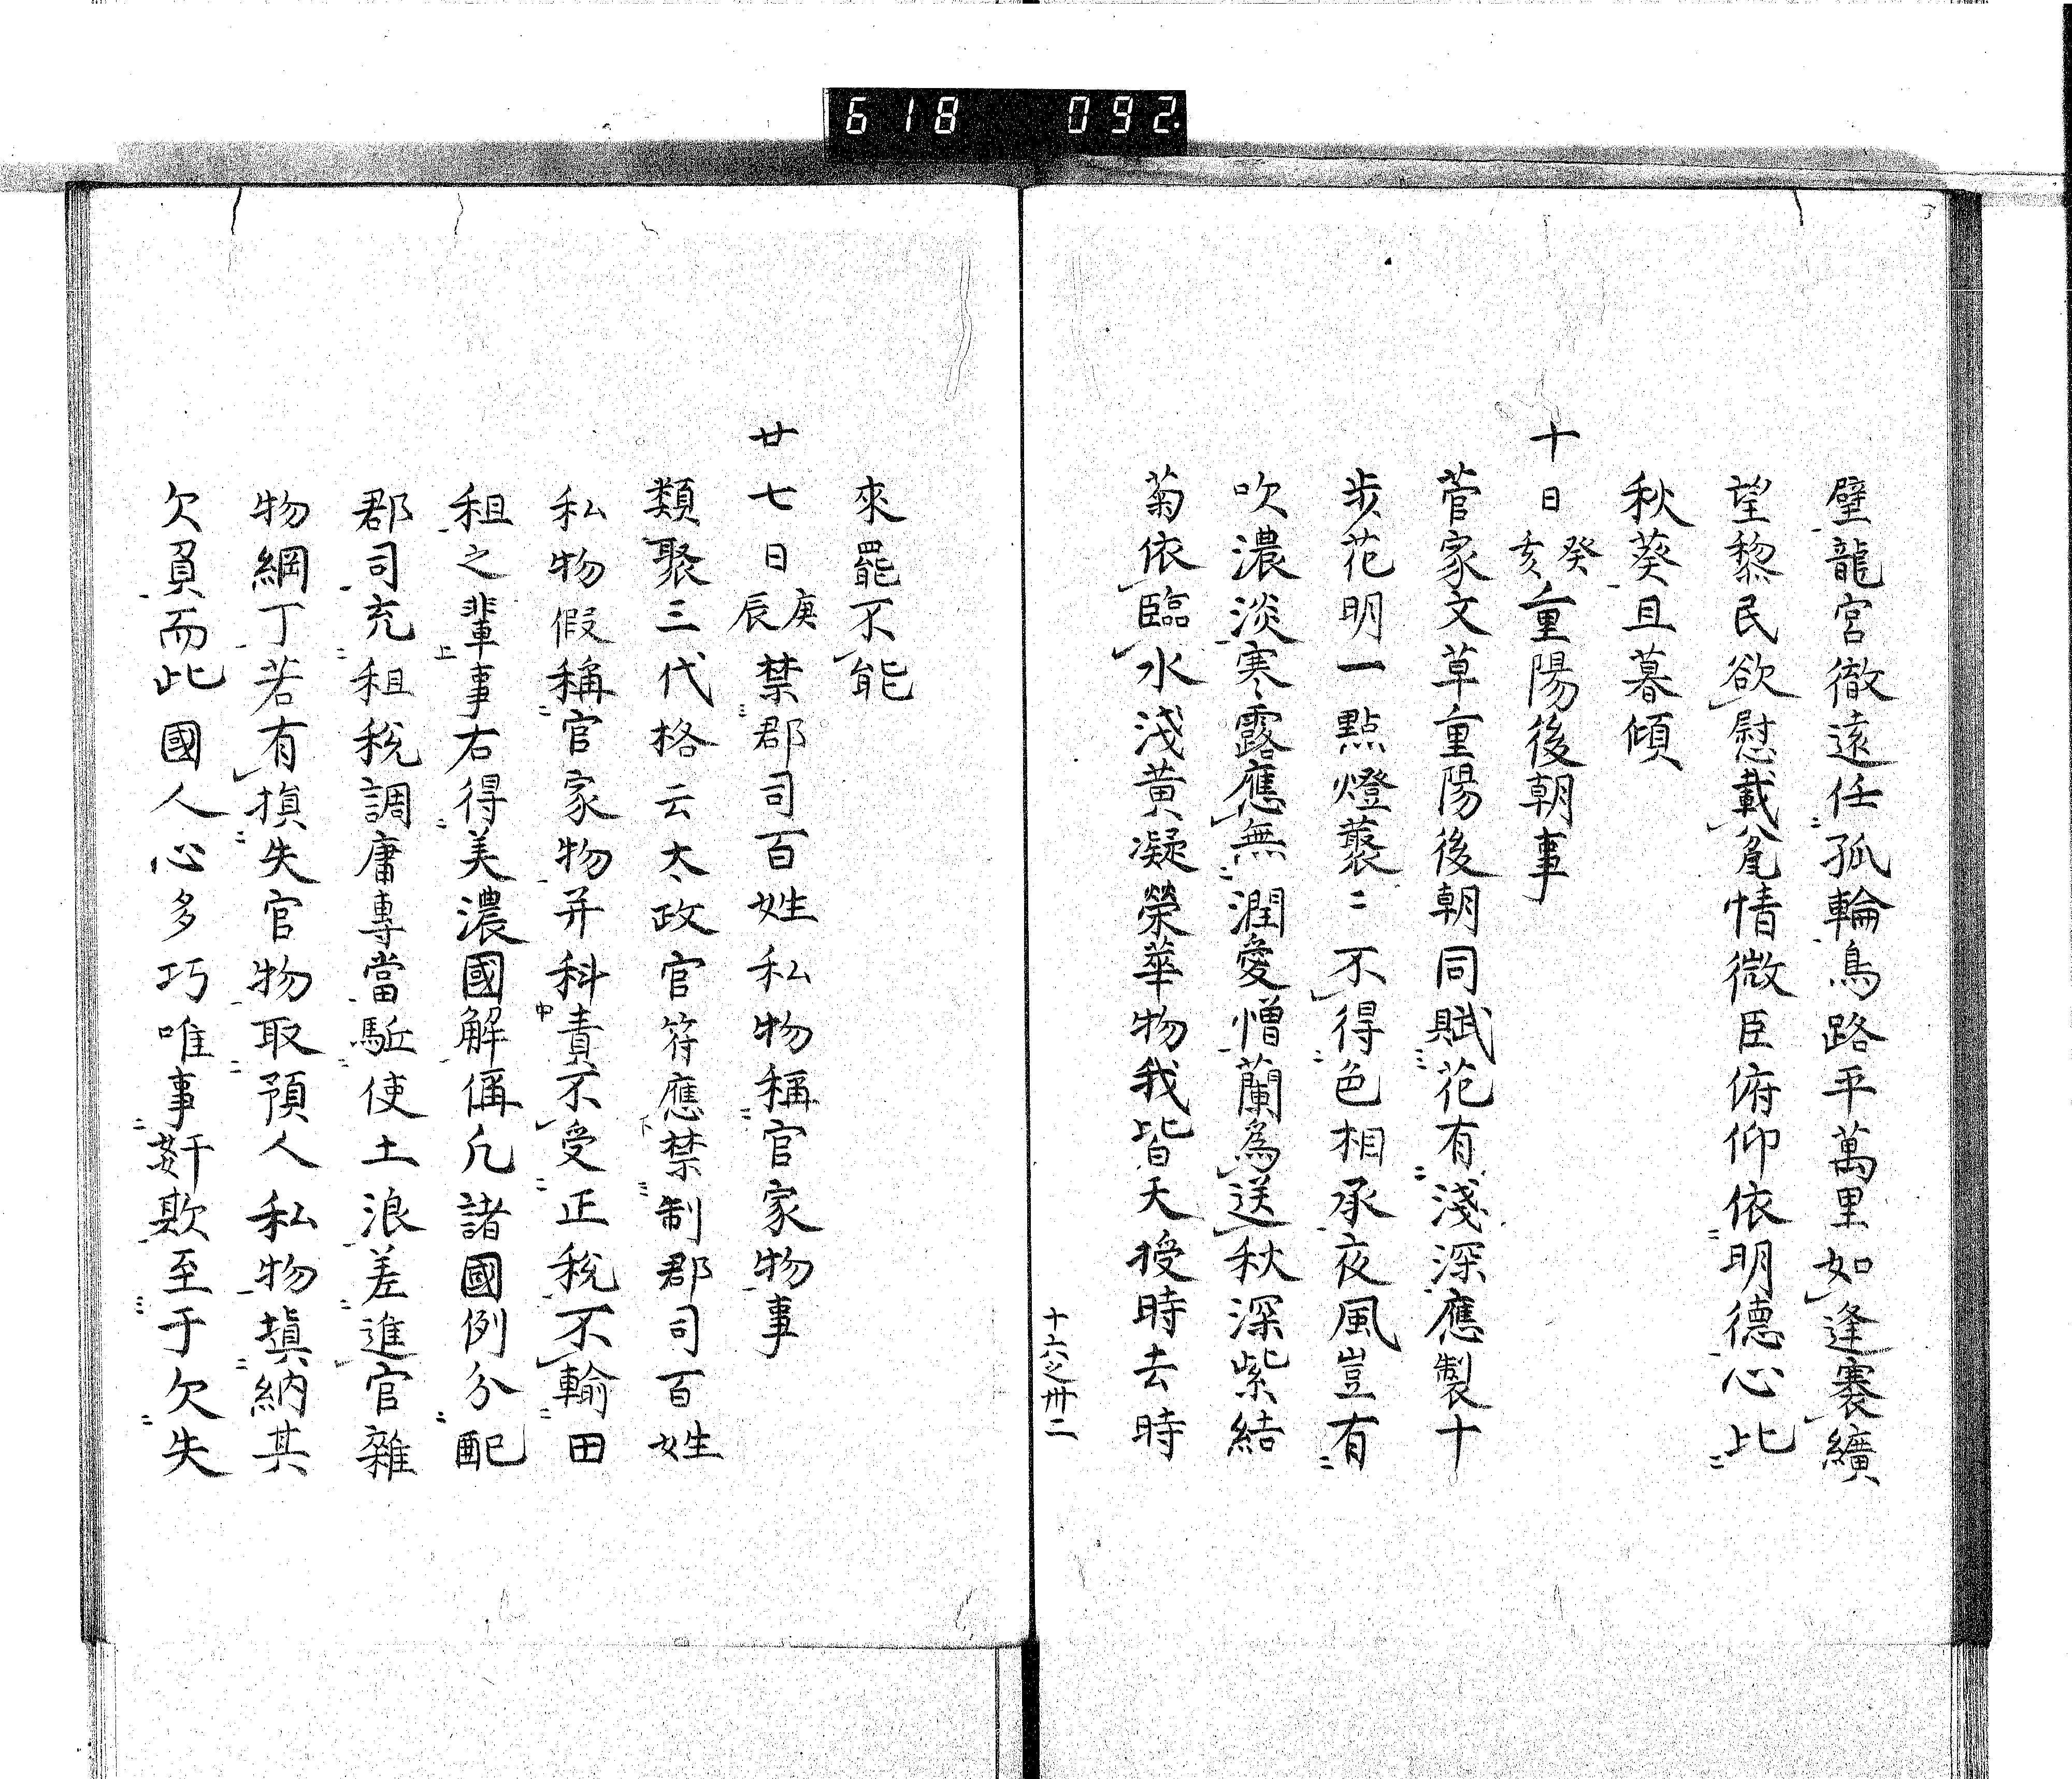 618 092
璧龍宮徹遠任孤輪鳥路平萬里如逢褰纊
望黎民欲慰載盆情微臣俯仰依明德心比
秋葵且暮傾
十日癸亥重陽後朝事
菅家文草重陽後朝同賦花有淺深應製十
步花明一點燈藂〻不得色相承夜風豈有
吹濃淡寒露應無潤愛憎蘭爲送秋深紫結
菊依臨水淺黃凝榮華物我皆天授時去時
十六之卅二
來罷不能
廿七日庚辰禁郡司百姓私物稱官家物事
類聚三代格云太政官符應禁制郡司百姓
私物假稱官家物并科責不受正稅不輸田
租之輩事右得美濃國解偁凡諸國例分配
郡司充租稅調庸專當駈使土浪差進官雜
物綱丁若有損失官物取預人私物塡納其
欠負而此國人心多巧唯事姧欺至于欠失